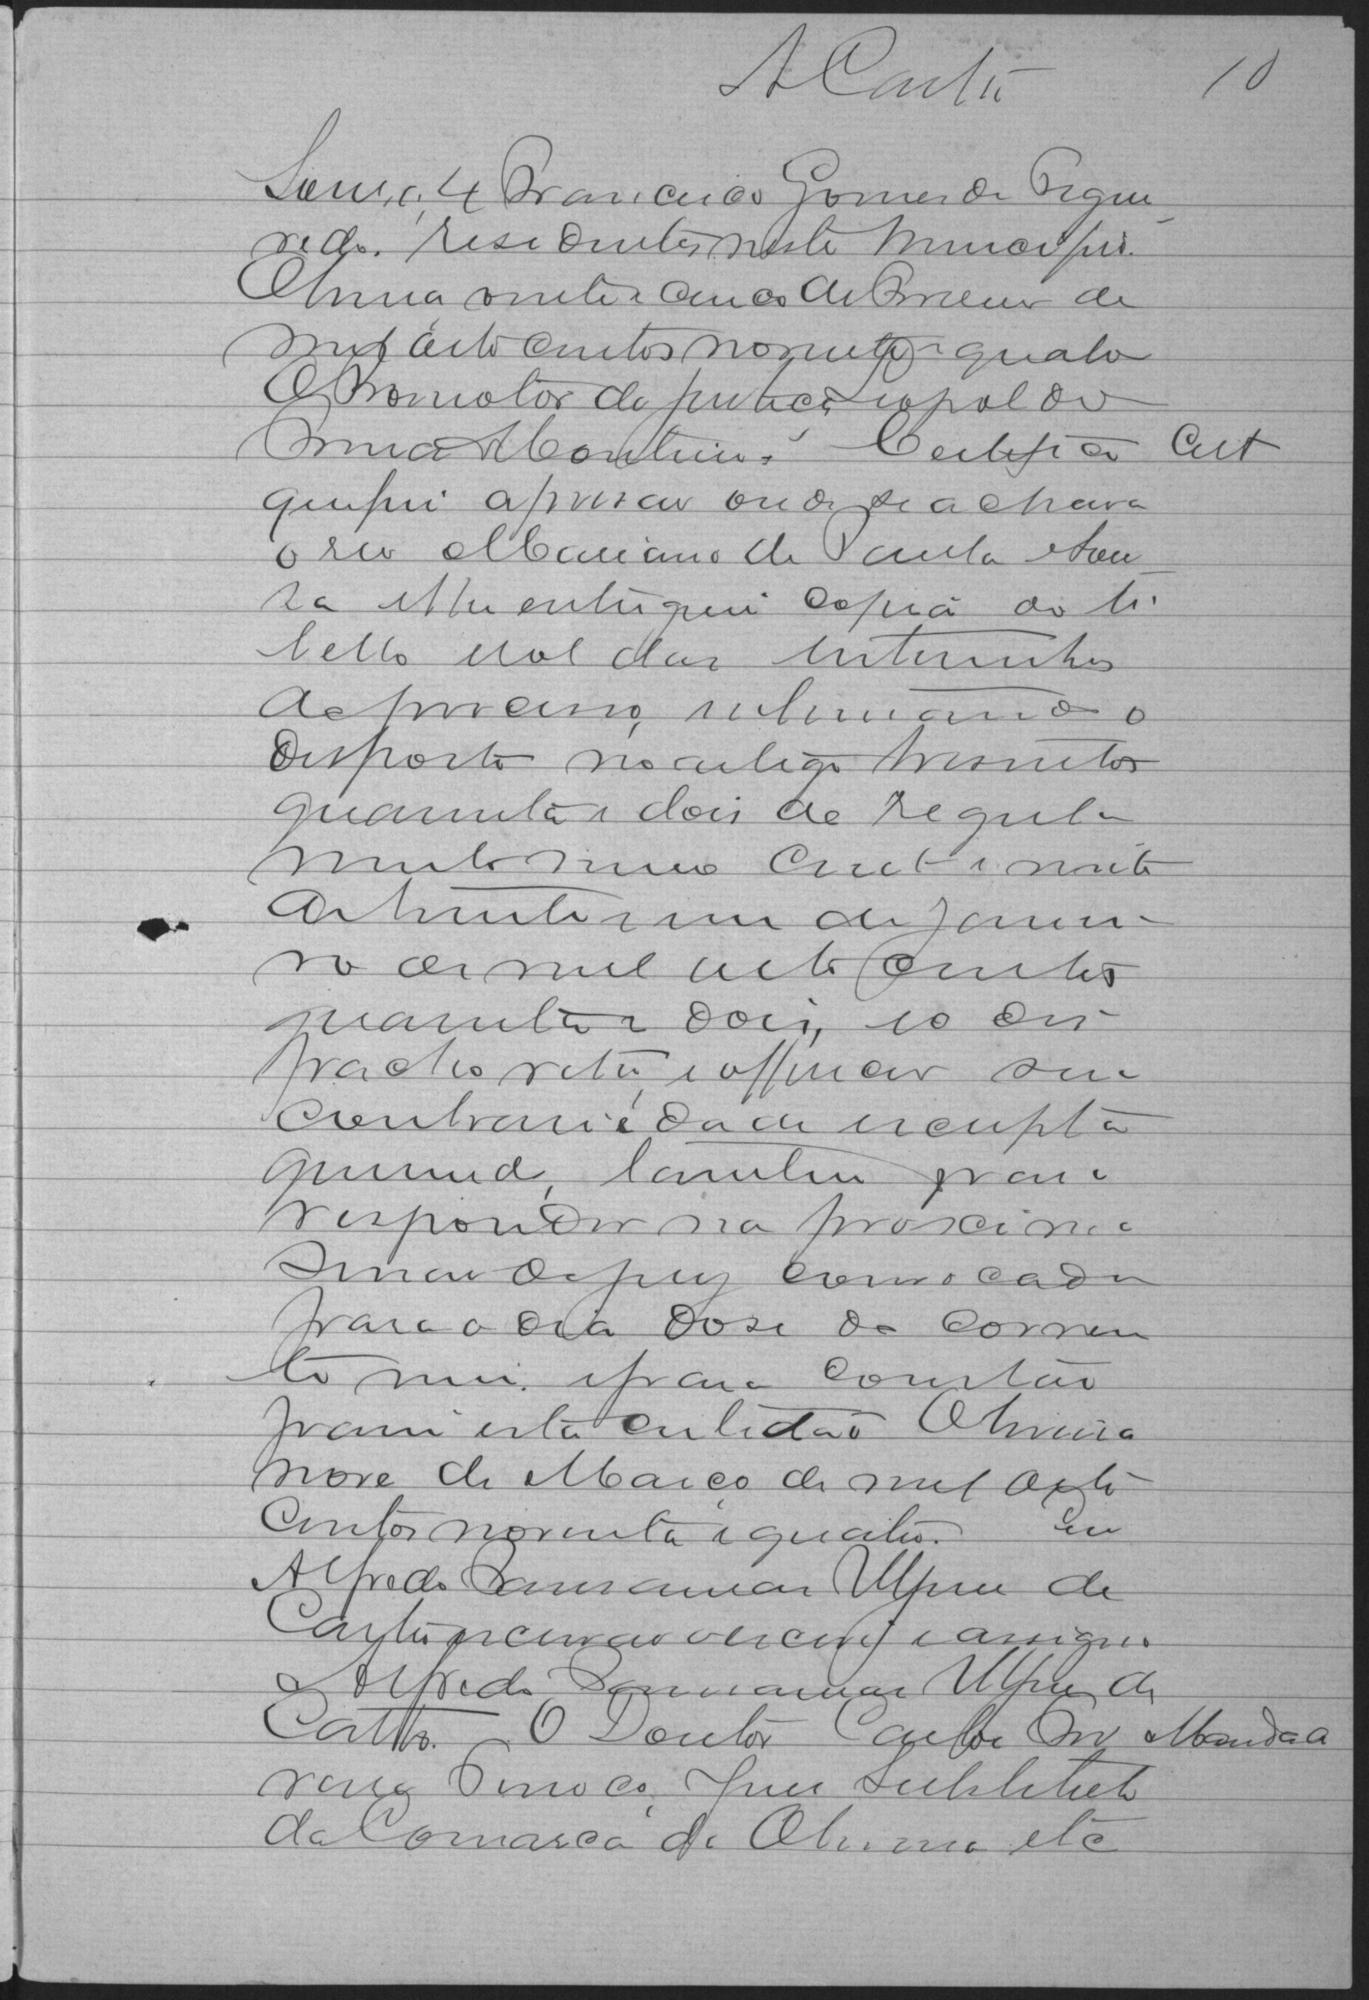 A Castro
10
Sousa, 4 Francisco Gomes de Figuei
redo. residentes neste municipio.
Oliveira vinte e cinco de Fevereiro de
mil oito centos noventa e quatro
O Promotor da justiça Leopoldo
Monteiro. Certifico Cert
que fui a prisão onde se achava
o reo Mariano de Paula e Sou
za e lhe entreguei copia do li
bello e rol das testemunhas
do processo, intimando o
disposto no artigo tresentos
quarenta e dois do regula
mento numero cento e vinte
de trinta e um de Janei
ro de mil oito centos
quarenta e dois, e o des
pacho retro, e offerecer sua
contrariedade escripta
querendo, tambem para
responder na proxima
sessão do jury convocada
para o dia dose do corren
te mes. e para constar
passei esta certidão Oliveira
nove de Março de mil oito
centos noventa e quatro. Eu
Alfredo de
Castro escrivão o escrevi e assigno
Alfredo de
Castro. O Doutor Carlos
Juiz Substituto
da Comarca de Oliveira etc